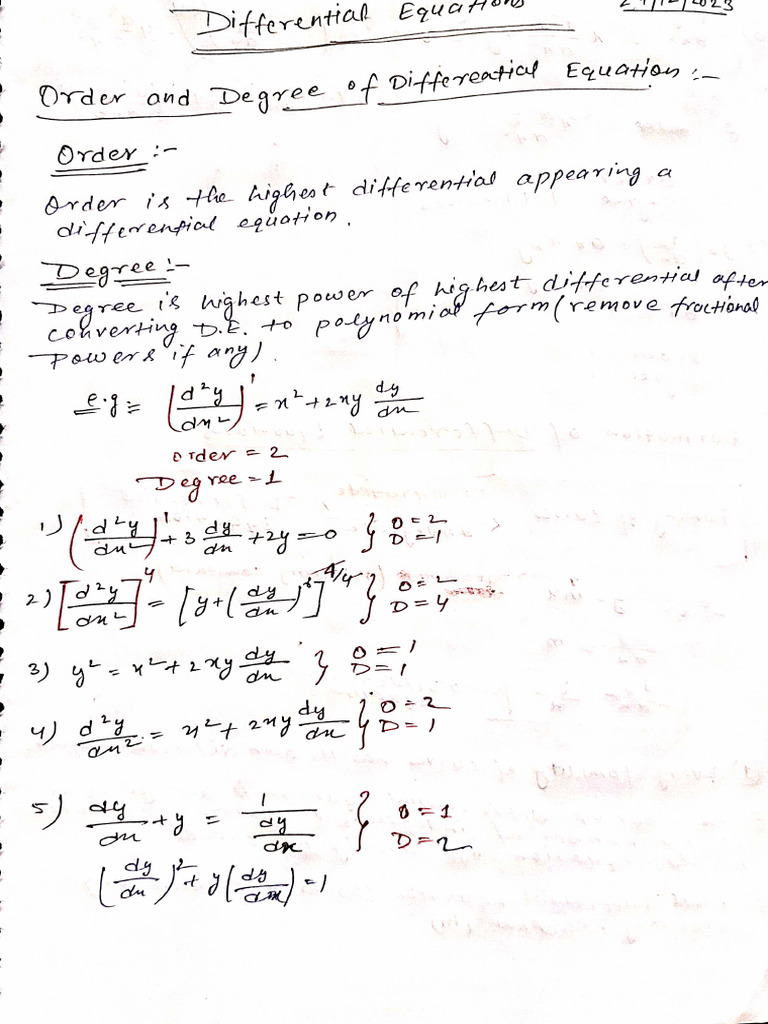 Differential Equations
Order and Degree of Differeatial Equation :-
Order :-
Order is the highest differential appearing a
differential equation.
Degree :-
Degree is highest power of highest differential after
converting D.E. to polynomial form (remove fractional
Powers if any).
e.g := (d²y/dx²)¹ = x² + 2xy dy/dx
order = 2
Degree = 1
1) (d²y/dx²)¹ + 3 dy/dx + 2y = 0 } O = 2 D = 1
2) [d²y/dx²]⁴ = [y + (dy/dx) ] } O = 2 D = 4
3) y² = x² + 2xy dy/dx } O = 1 D = 1
4) d²y/dx² = x² + 2xy dy/dx } O = 2 D = 1
5) dy/dx + y = 1/(dy/dx) } O = 1 D = 2
(dy/dx)² + y(dy/dx) = 1